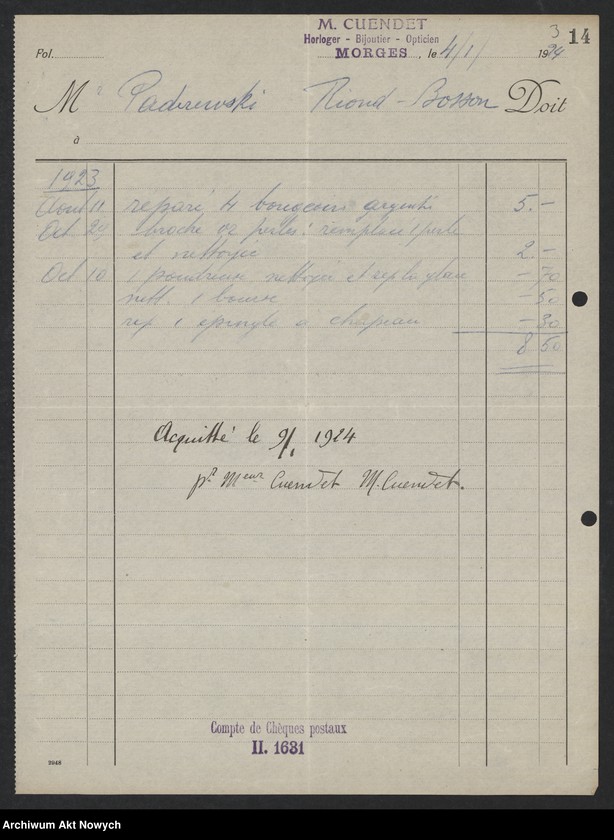 M. CUENDET
Horloger - Bijoutier - Opticien
MORGES, le 4/1/ 1924
3
14
Fol.
Mr Paderewski Riond-Bosson Doit
à
1923
Aout 11 reparé 4 bougeoirs argenté 5.-
Oct 24 1 broche or perles: remplacé 1 perle
et nettoyé 2.-
Oct 10 1 poudreuse nettoyé et rep la glace - 70
nett. 1 bourse - 50
rep 1 epingle a chapeau - 30
8 50
Acquitté le 9/1 1924
pr Meur Cuendet M. Cuendet.
Compte de Chèques postaux
II. 1631
2948
Archiwum Akt Nowych